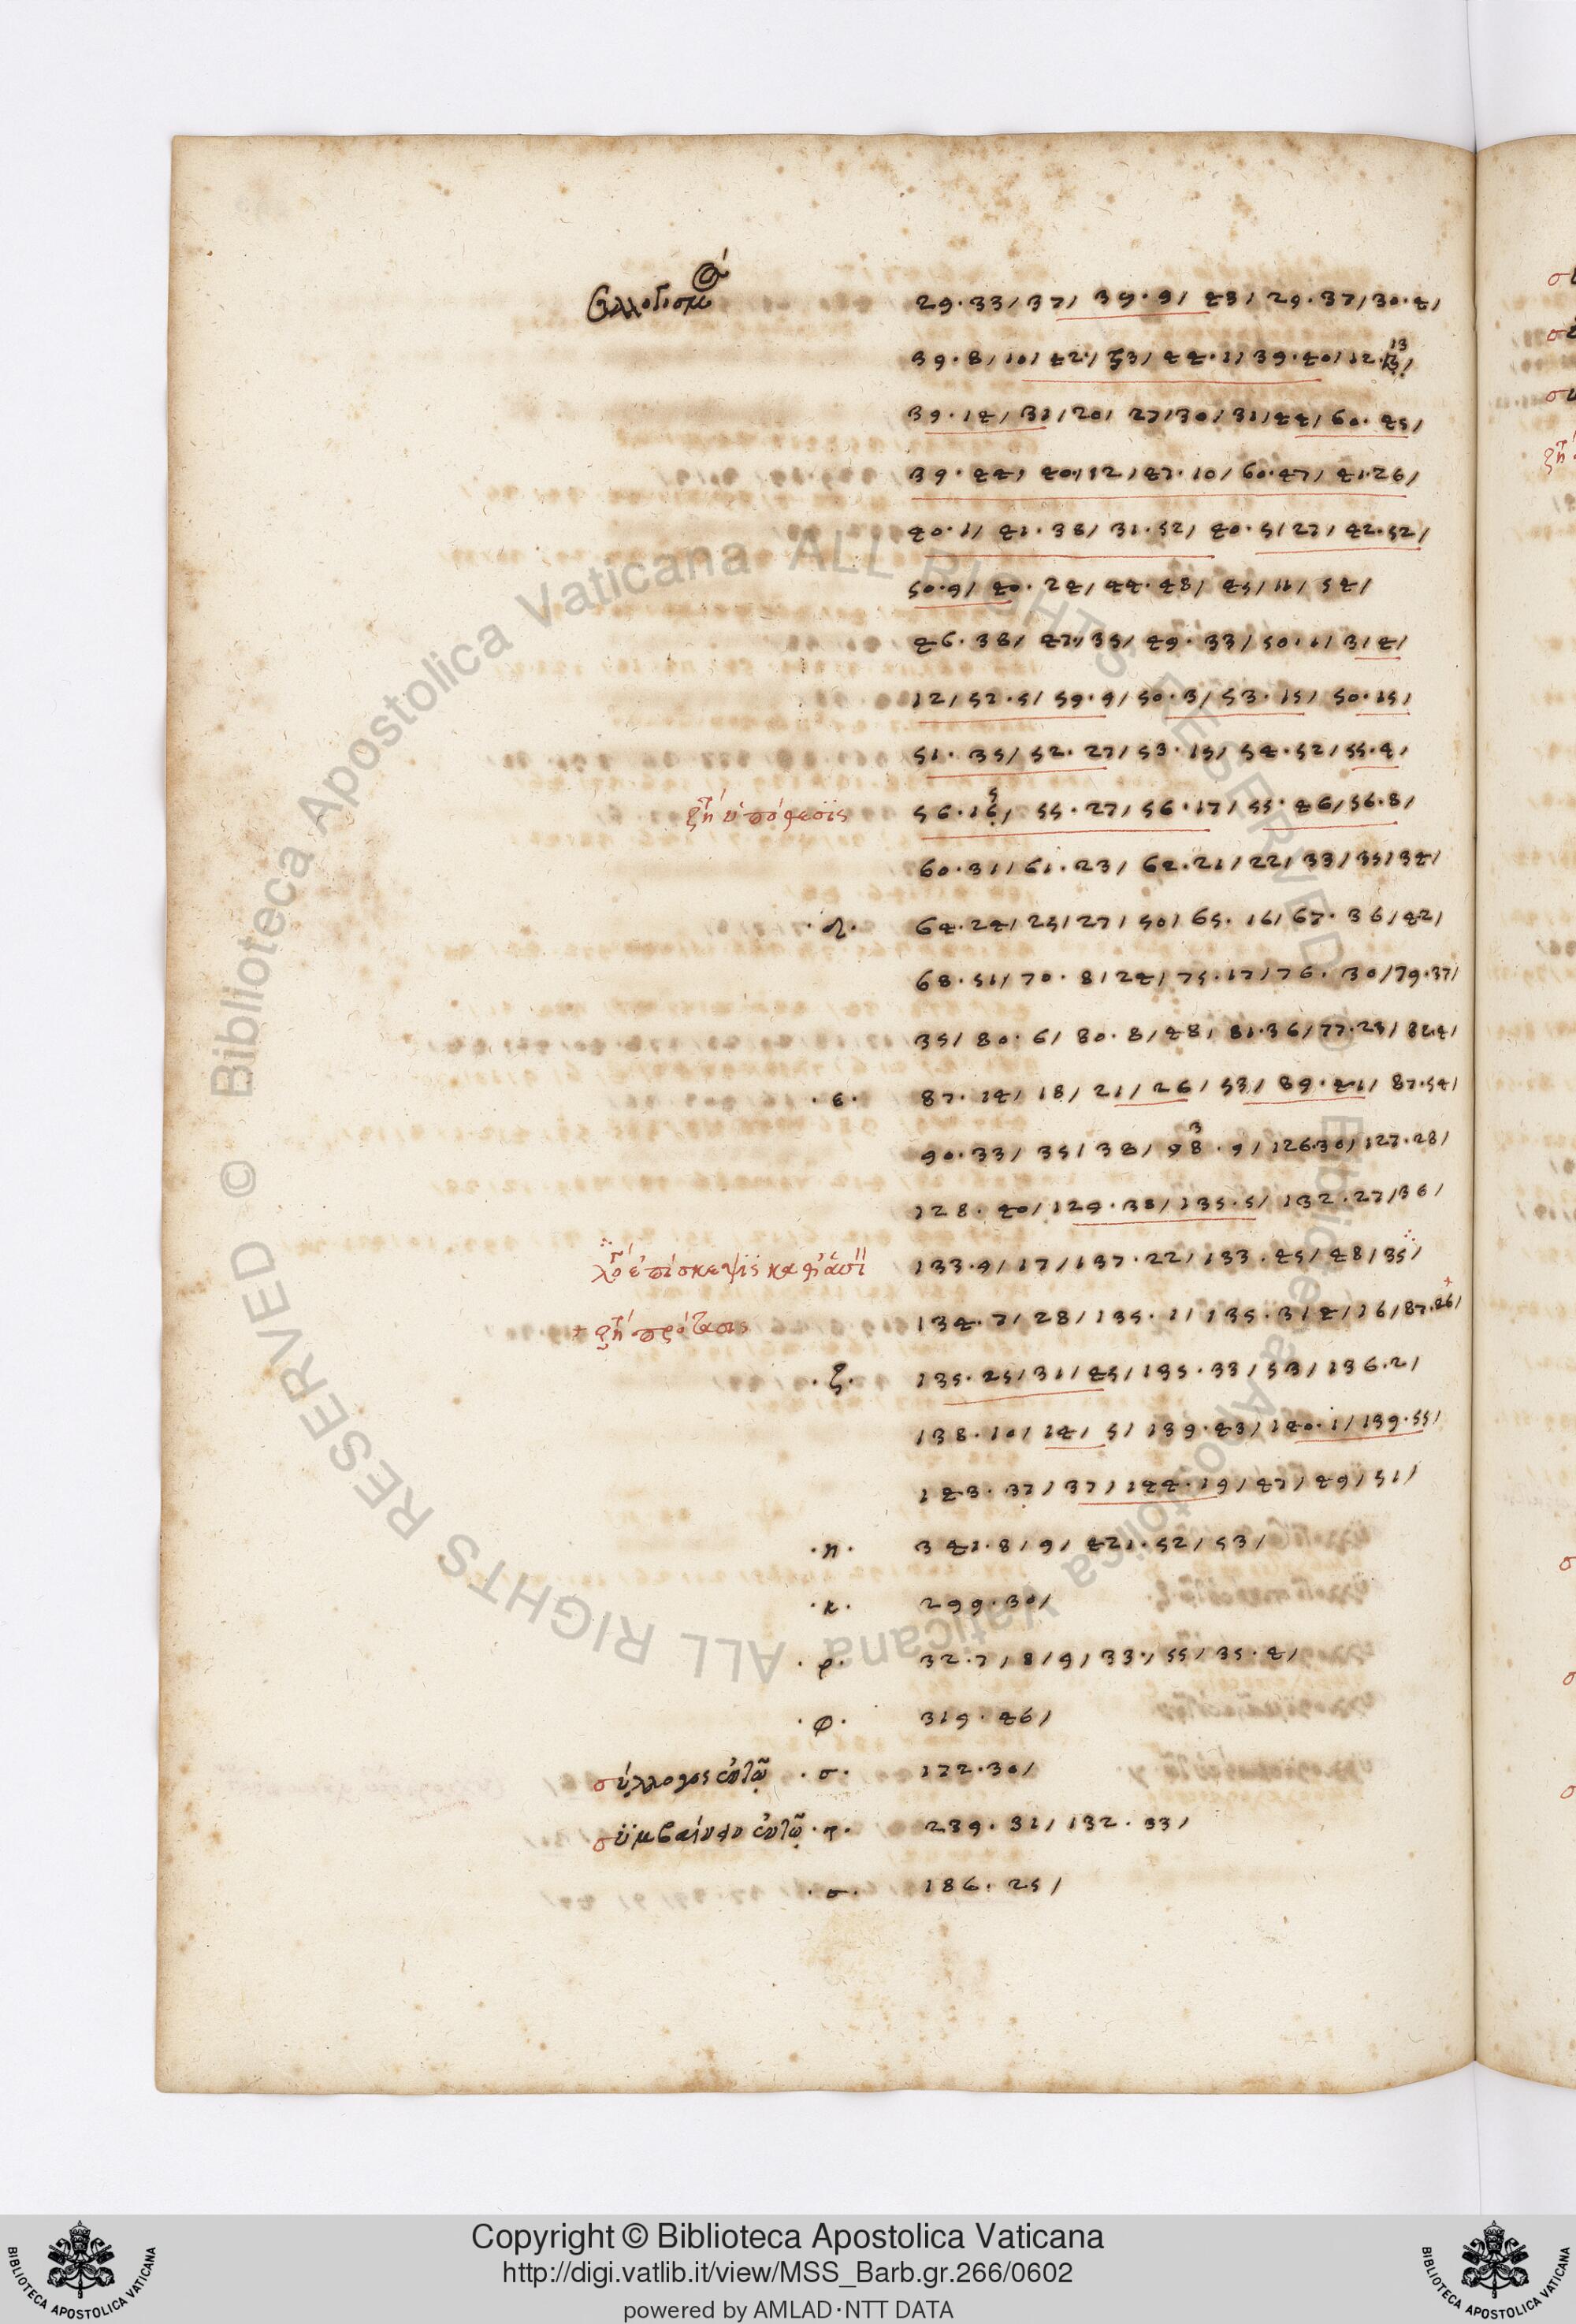 συλλογισμῶ α´ 29·33/37/ 39·9/ 43/ 29·37/30·4/
39·8/10/42·/53/ 44·1/39·40/12·13/
39·14/31/20/ 27/30/31/44/60·45/
39·44/ 40·/12/47·10/60·47/ 41·26/
40·1/ 41·38/ 31·52/ 40·5/27/ 42·52/
50·9/ 40·24/ 44·48/ 45/11/ 54/
46·38/ 47·/35/ 49·33/50·1/3/4/
12/52·5/ 59·9/50·3/53·15/ 50·15/
51·35/52·27/53·15/54·52/55·4/
ζτ´ ὑπόθεσις 56·16/ 55·27/56·17/55·46/56·8/
60·31/61·23/ 62·21/22/ 33/35/34/
·λ· 64·24/25/27/50/65·16/67·36/42/
68·51/70·8/24/75·17/76·30/79·37/
35/80·6/ 80·8/48/ 81·36/77·23/82·4/
·ε· 87·14/18/21/26/53/89·41/87·54/
90·33/35/38/98·9/126·30/127·28/
128·40/129·38/135·5/132·27/36/
133·9/17/137·22/133·45/48/35/
134·7/28/135·1/135·3/4/16/87·26/
+ ζτ´ πρότασις
·ζ· 135·25/31/45/135·33/53/136·2/
138·10/14/5/139·43/140·1/139·55/
143·37/37/144·19/47/49/51/
·η· 341·8/9/421·52/53/
·κ· 299·30/
·ρ· 32·7/8/9/33·/55/35·4/
·φ· 319·46/
σύλλογος ἐν τῶ ·σ· 172·30/
συμβαίνειν ἐν τῶ ·τ· 239·31/132·33/
·σ· 186·25/
Copyright © Biblioteca Apostolica Vaticana
http://digi.vatlib.it/view/MSS_Barb.gr.266/0602
powered by AMLAD·NTT DATA